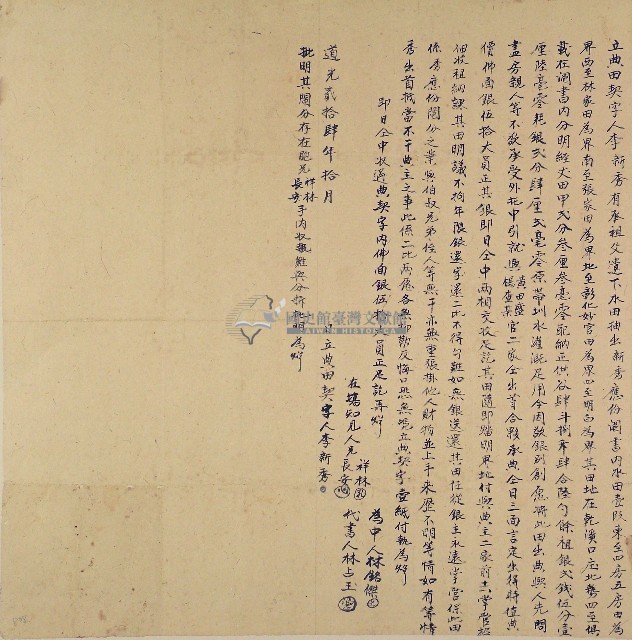 立典田契字人李新秀有承祖父遺下水田抽出新秀應份鬮書內水田壹段東至四房五房田為
界西至林家田為界南至張家田為界北至彰化妙宮田為界四至明白為界其田地在乾溪口庄北勢四至俱
載在鬮書內分明經丈田甲弍分叁厘叁毫零配納正供谷肆斗捌升肆合陸勺餘租銀弍錢伍分壹
厘陸毫零耗銀弍分肆厘弍毫零原帶圳水灌溉足用今因欠銀別創愿將此田出典與人先問
盡房親人等不欲承受外托中引就與黃田盛楊查某官二家仝出首合夥承典仝日三面言定出得時值典
價佛面銀伍拾大員正其銀即日仝中兩相交收足訖其田隨即踏明界址付與典主二家前去掌管招
佃收租納課其田明議不拘年限銀還字還二比不得刁難如無銀送還其田任從銀主永遠掌管保此田
係秀應份鬮分之業與伯叔兄弟侄人等無干亦無重張掛他人財物並上手來歷不明等情如有等情
秀出首抵當不干典主之事此係二比兩愿各無抑勒反悔口恐無憑立典契字壹紙付執為炤
即日仝中收過典契字內佛面銀伍拾大員正足訖再炤
為中人林銘傑
代書人林占玉
在場知見人兄祥林 長安
日立典田契字人李新秀
道光貳拾肆年拾月
批明其鬮分存在胞兄祥林長安手內收執難與分拆批明為炤
國史館臺灣文獻館
TAIWAN HISTORICA